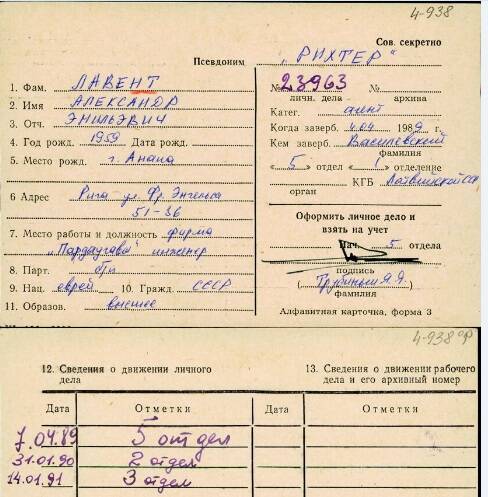 4-938
Сов. секретно
Псевдоним „РИХТЕР"
1. Фам. ЛАВЕНТ
2. Имя АЛЕКСАНДР
3. Отч. ЭМИЛЬЕВИЧ
4. Год рожд. 1959 Дата рожд.
5. Место рожд. г. Анапа
6 Адрес Рига ул Фр. Энгельса
51-36
7. Место работы и должность фирма
„Пардаугава" инженер
8. Парт. б/п
9. Нац. еврей 10. Гражд. СССР
11. Образов. высшее
№ 23963 №
личн. дела архива
Катег. агент
Когда заверб. 4.04 1989 г.
Кем заверб. Василевский
фамилия
«5» отдел «1» отделение
КГБ Латвийской ССР
орган
Оформить личное дело и
взять на учет
Нач. 5 отдела
подпись
(Трубиньш Я.Я.)
фамилия
Алфавитная карточка, форма 3
4-938 об
12. Сведения о движении личного
дела
13. Сведения о движении рабочего
дела и его архивный номер
Дата Отметки Дата Отметки
7.04.89 5 отдел
31.01.90 2 отдел
14.01.91 3 отдел